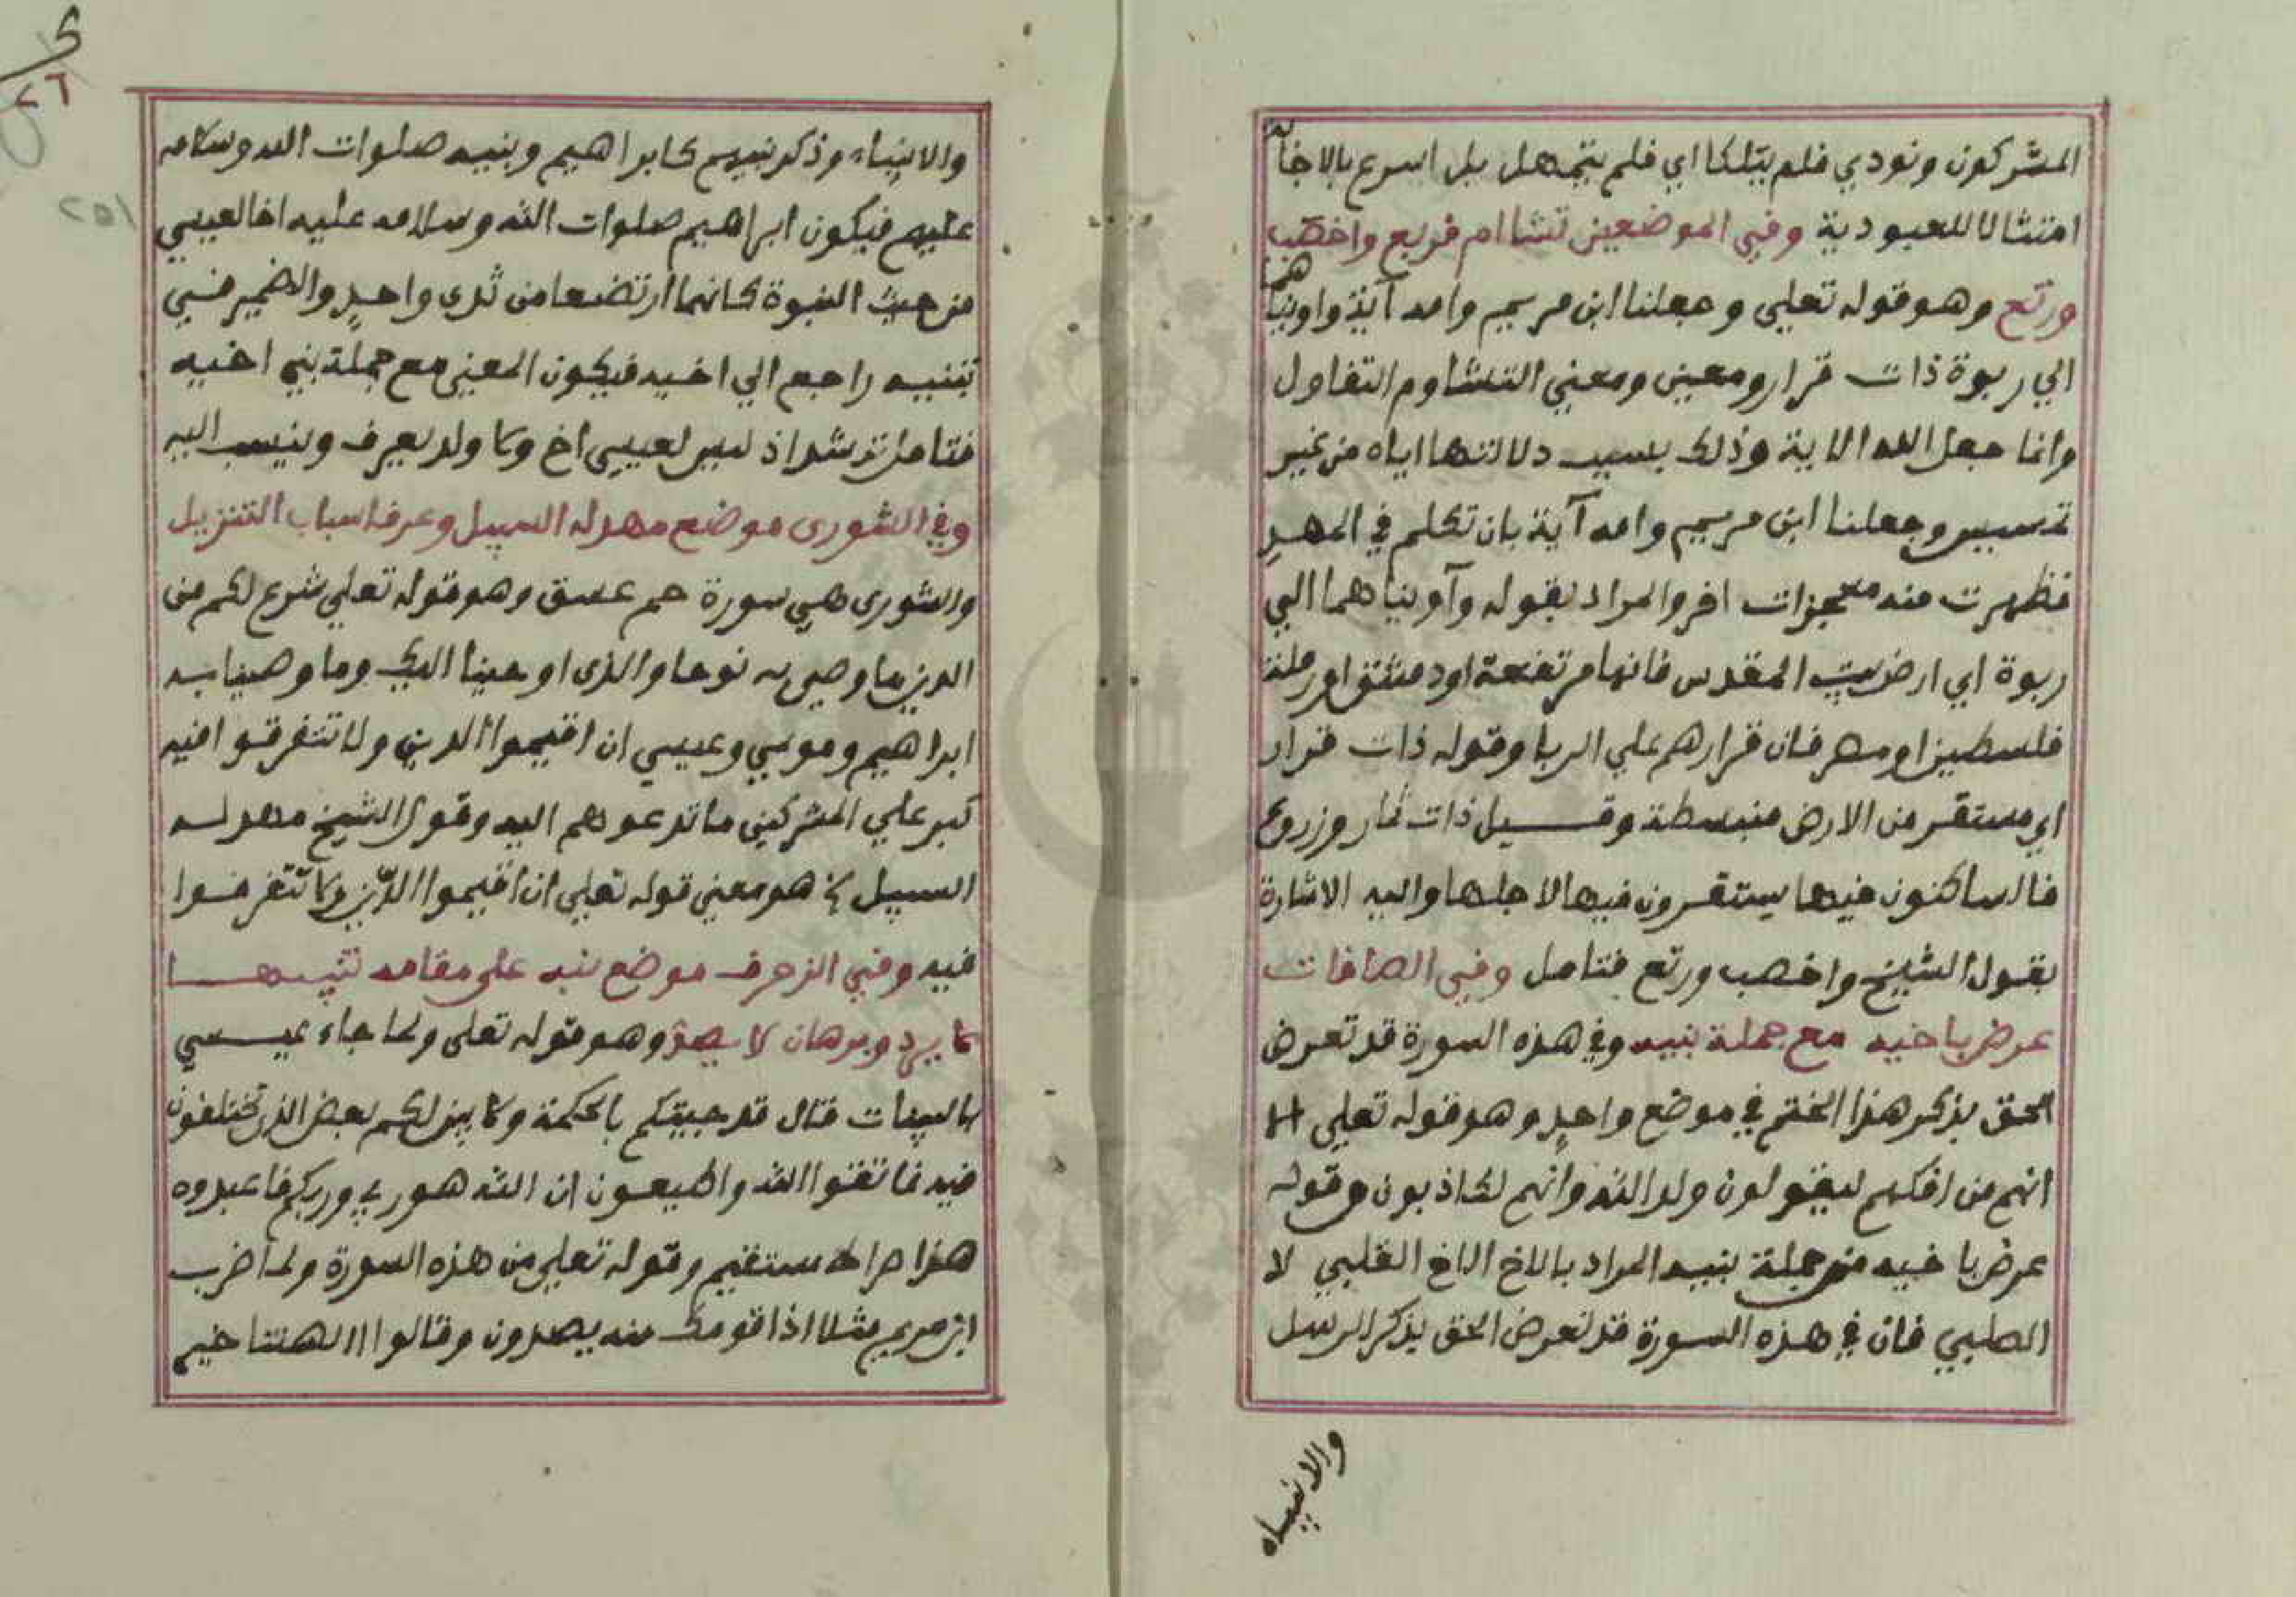 المشركون ونودي فلم يتلكا اي فلم يتمهل بل اسرع بالاجابة
امتثالا للعبودية وفي الموضعين تشاام فربع واخصب
ورتع وهو قوله تعلي وجعلنا ابن مريم وامه آية واويناهما
الي ربوة ذات قرار ومعين ومعني التشاوم التفاول
وانما جعل الله الاية وذلك بسبب دلالتها اياه من غير
تمسيس وجعلنا ابن مريم وامه آية بان تكلم في المهد
فظهرت منه معجزات اخر والمراد بقوله وآويناهما الي
ربوة اي ارض بيت المقدس فانها مرتفعة او دمشق او رملة
فلسطين او مصر فان قرارهم علي الربا وقوله ذات قرار
اي مستقر من الارض منبسطة وقيل ذات ثمار وزروع
فالساكنون فيها يستقرون فيها لاجلها واليه الاشارة
بقول الشيخ واخصب ورتع فتامل وفي الصافات
عرض باخيه مع جملة بنيه وفي هذه السورة قد تعرض
الحق بذكر هذا الختم في موضع واحد وهو قوله تعلي الا
انهم من افكهم ليقولون ولد الله وانهم لكاذبون وقوله
عرض باخيه من جملة بنيه المراد بالاخ الاخ القلبي لا
الصلبي فان في هذه السورة قد تعرض الحق بذكر الرسل
والانبياء
والانبياء وذكر بنيهم كابراهيم وبنيه صلوات الله وسلامه
عليهم فيكون ابراهيم صلوات الله وسلامه عليه اخا لعيسي
من حيث النبوة كانهما ارتضعا من ثدى واحد والضمير في
بنيه راجع الي اخيه فيكون المعني مع جملة بني اخيه
فتامل ترشد اذ ليس لعيسي اخ ولا ولد يعرف وينسب اليه
وفي الشورى موضع مهد له السبيل وعرف اسباب التنزيل
والشورى هي سورة حم عسق وهو قوله تعلي شرع لكم من
الدين ما وصي به نوحا والذى اوحينا اليك وما وصينا به
ابراهيم وموسي وعيسي ان اقيموا الدين ولا تتفرقوا فيه
كبر علي المشركين ما تدعوهم اليه وقول الشيخ مهد له
السبيل الخ هو معني قوله تعلي ان اقيموا الدين ولا تتفرقوا
فيه وفي الزخرف موضع نبه على مقامه تنبيها
لا يرد وبرهان لا يصد وهو قوله تعلى ولما جاء عيسي
بالبينات قال قد جيتكم بالحكمة ولابين لكم بعض الذى تختلفون
فيه فاتقوا الله واطيعون ان الله هو ربي وربكم فاعبدوه
هذا صراط مستقيم وقوله تعلي من هذه السورة ولما ضرب
ابن مريم مثلا اذا قومك منه يصدون وقالوا االهتنا خير
٢٦
٢٥١